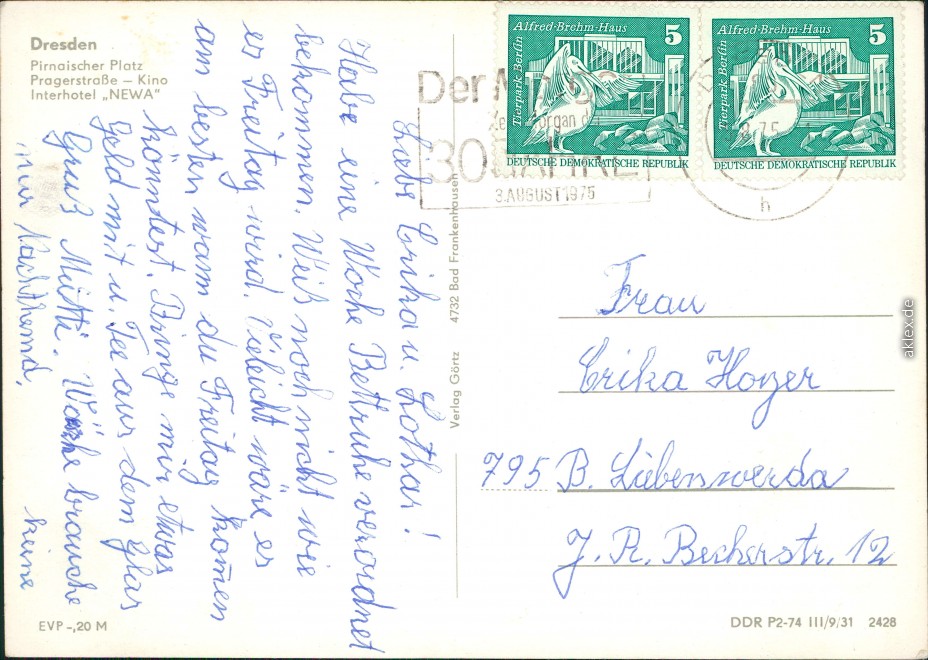 Dresden
Pirnaischer Platz
Pragerstraße – Kino
Interhotel „NEWA"
Liebe Erika u. Lothar!
Habe eine Woche Bettruhe verordnet
bekommen. Weiß noch nicht wie
es Freitag wird. Vieleicht wäre es
am besten wann du Freitag komen
könntest. Bringe mir etwas
Geld mit u. Tee aus dem Glas
Gruß Mutti. Wäsche brauche
keine
nur Nachthemd,
EVP –,20 M
Verlag Görtz 4732 Bad Frankenhausen
Alfred-Brehm-Haus
5
Tierpark Berlin
DEUTSCHE DEMOKRATISCHE REPUBLIK
Alfred-Brehm-Haus
5
Tierpark Berlin
DEUTSCHE DEMOKRATISCHE REPUBLIK
Der
organ d
30
3. AUGUST 1975
h
Frau
Erika Hoyer
795 B. Liebenwerda
J. R. Becherstr. 12
DDR P2-74 III/9/31 2428
aklex.de